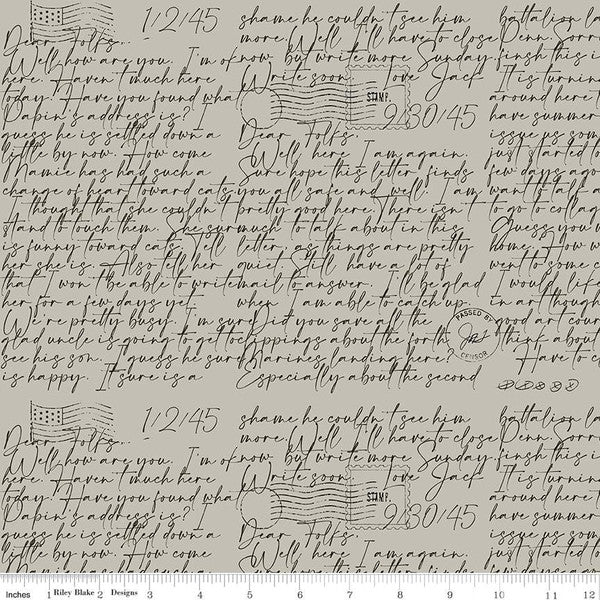 1/2/45
Dear Folks..
Well, how are you. I'm ok
here. Haven't much here
today. Have you found wha
Papin's address is? I
guess he is settled down a
little by now. How come
Mamie has had such a
change of heart toward cats,
I thought that she couldn't
stand to touch them. She sur
is funny toward cats. Tell
her she is. Also tell her
that I won't be able to write
her for a few days yet.
We're pretty busy. I'm sure
glad uncle is going to get to
see his son. I guess he sure
is happy. It sure is a
shame he couldn't see him
more. Well I'll have to close
now but write more Sunday.
Write soon. love Jack
STAMP.
9/30/45
Dear Folks.
Well, here I am again.
Sure hope this letter finds
you all safe and well. I am
pretty good here. There isn't
much to talk about in this
letter, as things are pretty
quiet. Still have a lot of
mail to answer. I'll be glad
when I am able to catch up.
Did you save all the
clippings about the forth
Marines landing here?
Especially about the second
PASSED BY
CENSOR
battalion la
Penn. Sorry
finsh this i
It is turnin
around here t
have summer
issue us som
just started to
few days a
want to talk a
to go to collag
Guess you w
home. How w
went to some c
I would life
in art though
good art cour
think about
Have to c
1/2/45
Dear Folks..
Well, how are you. I'm ok
here. Haven't much here
today. Have you found wha
Papin's address is? I
guess he is settled down a
little by now. How come
shame he couldn't see him
more. Well I'll have to close
now but write more Sunday.
Write soon. love Jack
STAMP.
9/30/45
Dear Folks.
Well, here I am again.
battalion la
Penn. Sorry
finsh this i
It is turnin
around here t
have summer
issue us som
just started to
Inches 1 Riley Blake 2 Designs 3 4 5 6 7 8 9 10 11 12